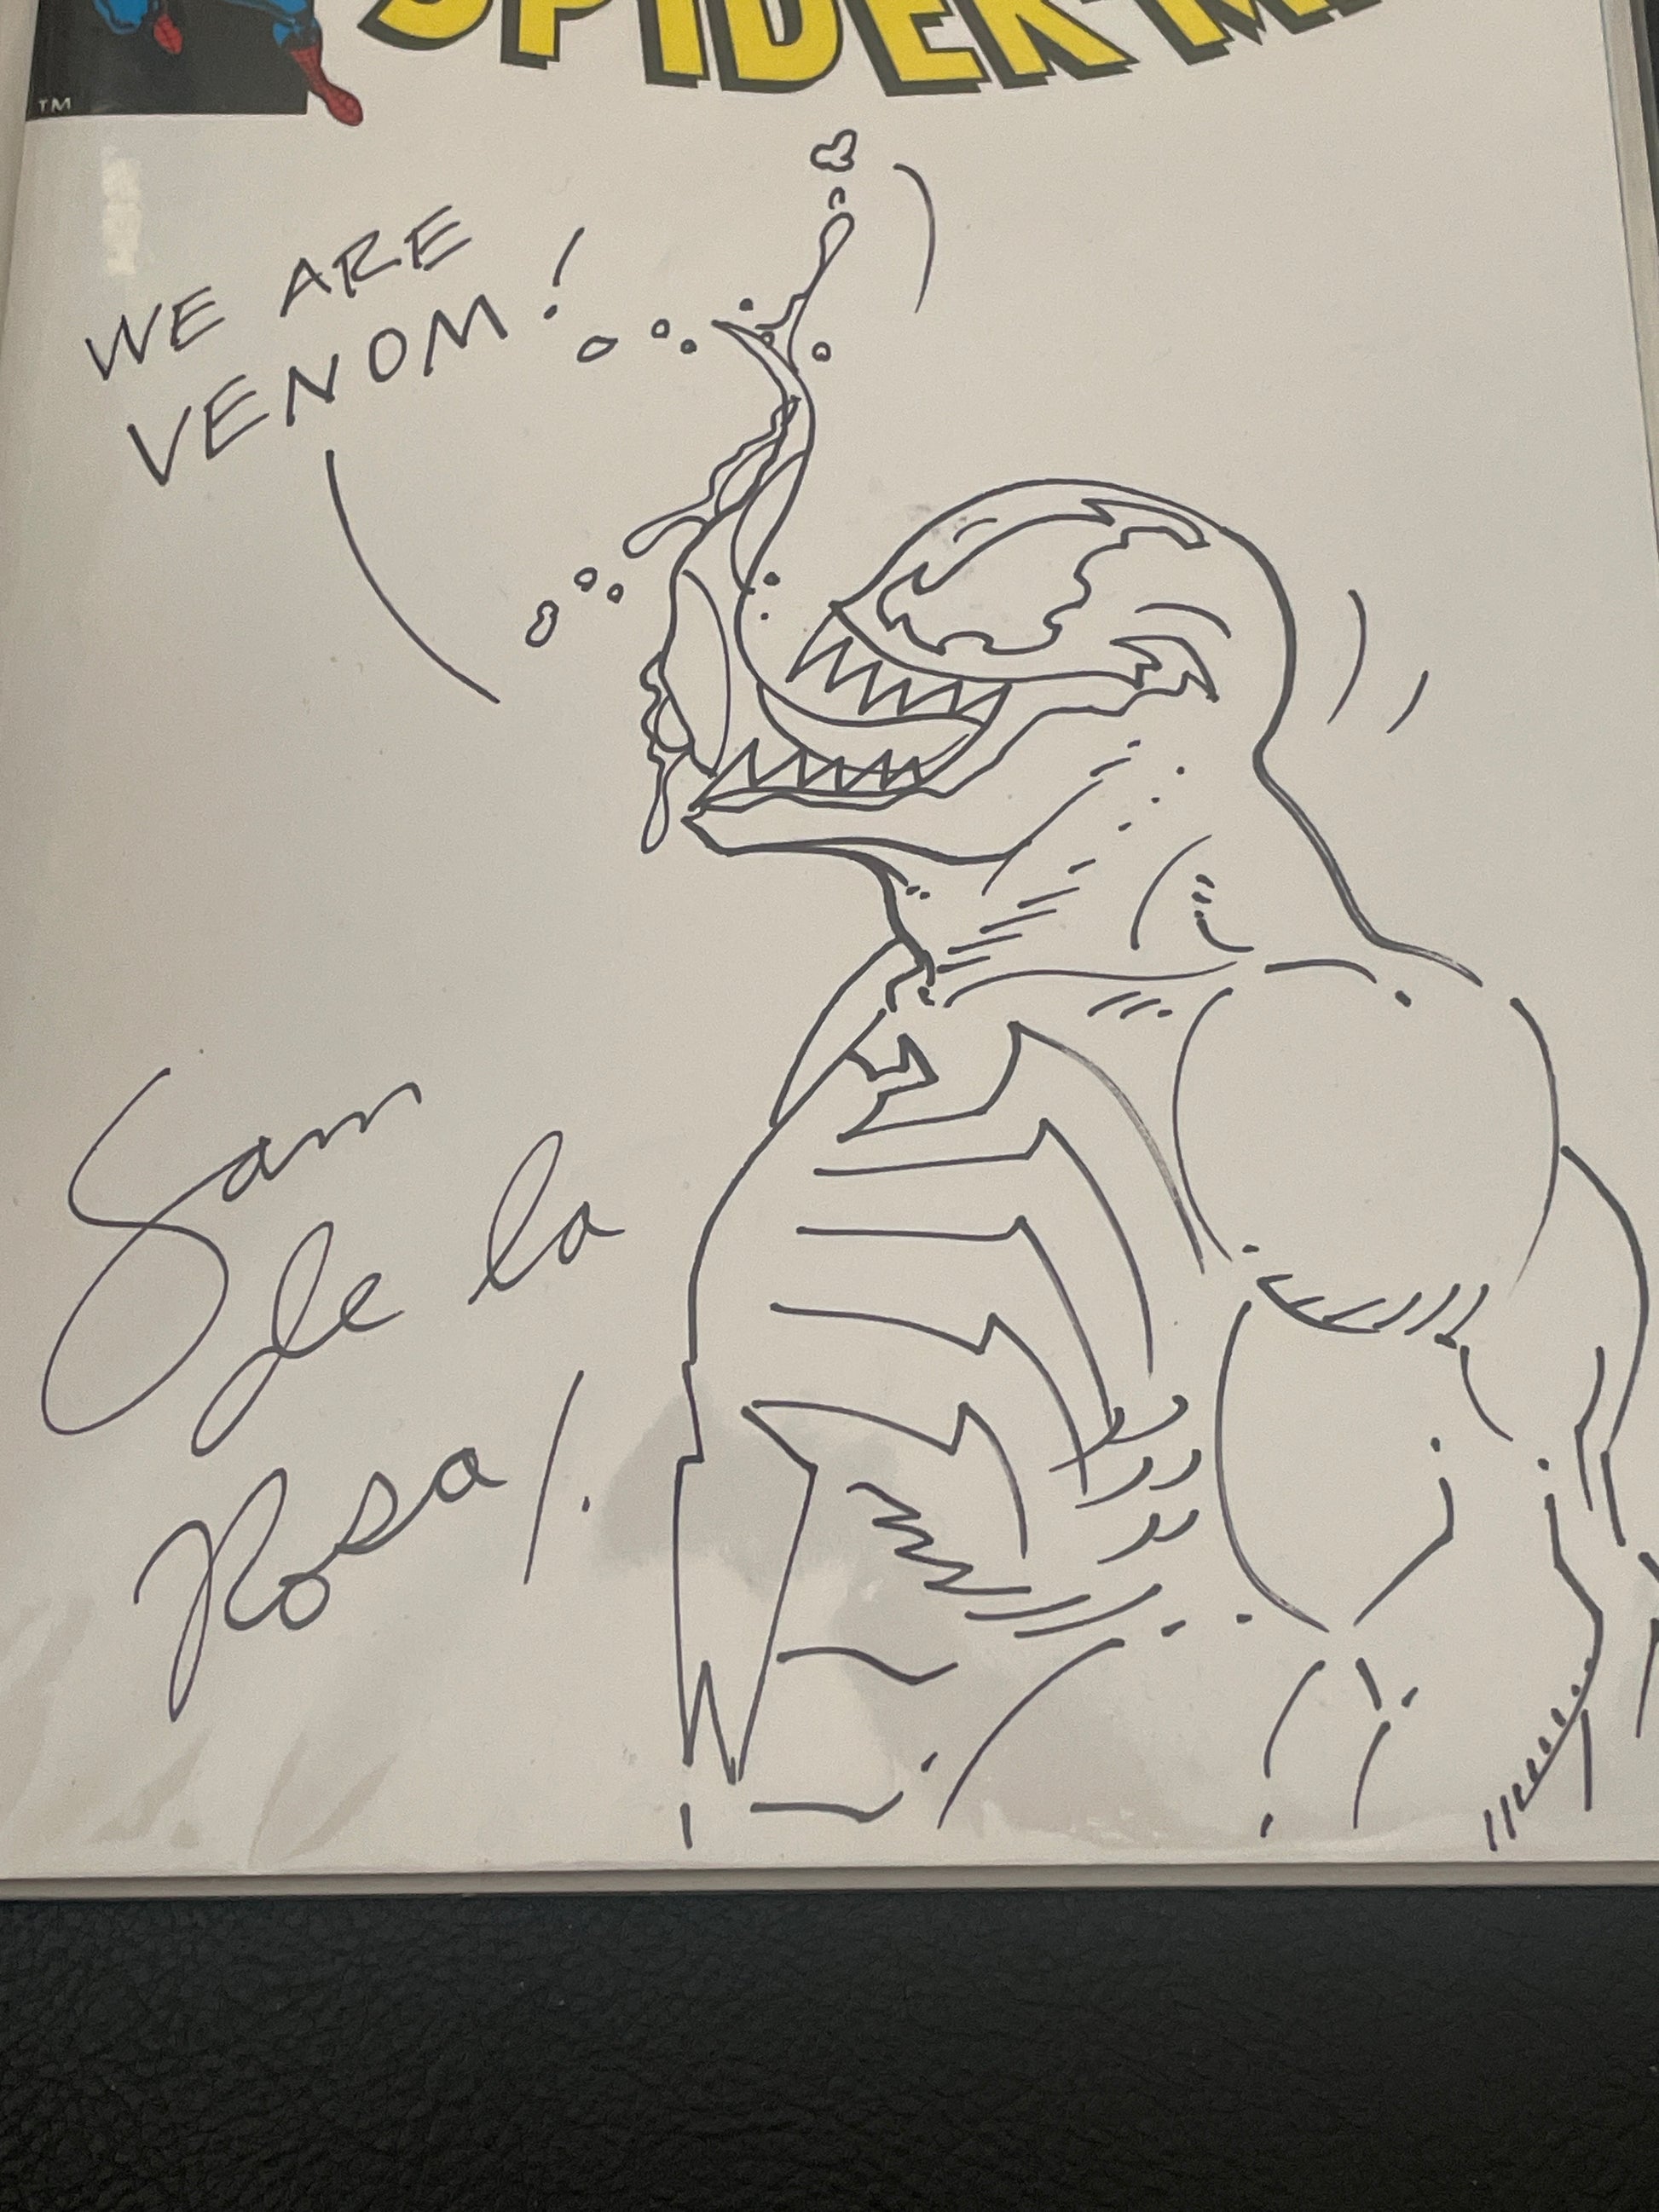 SPIDER-M
TM
WE ARE
VENOM!
Sam
de la
Rosa!